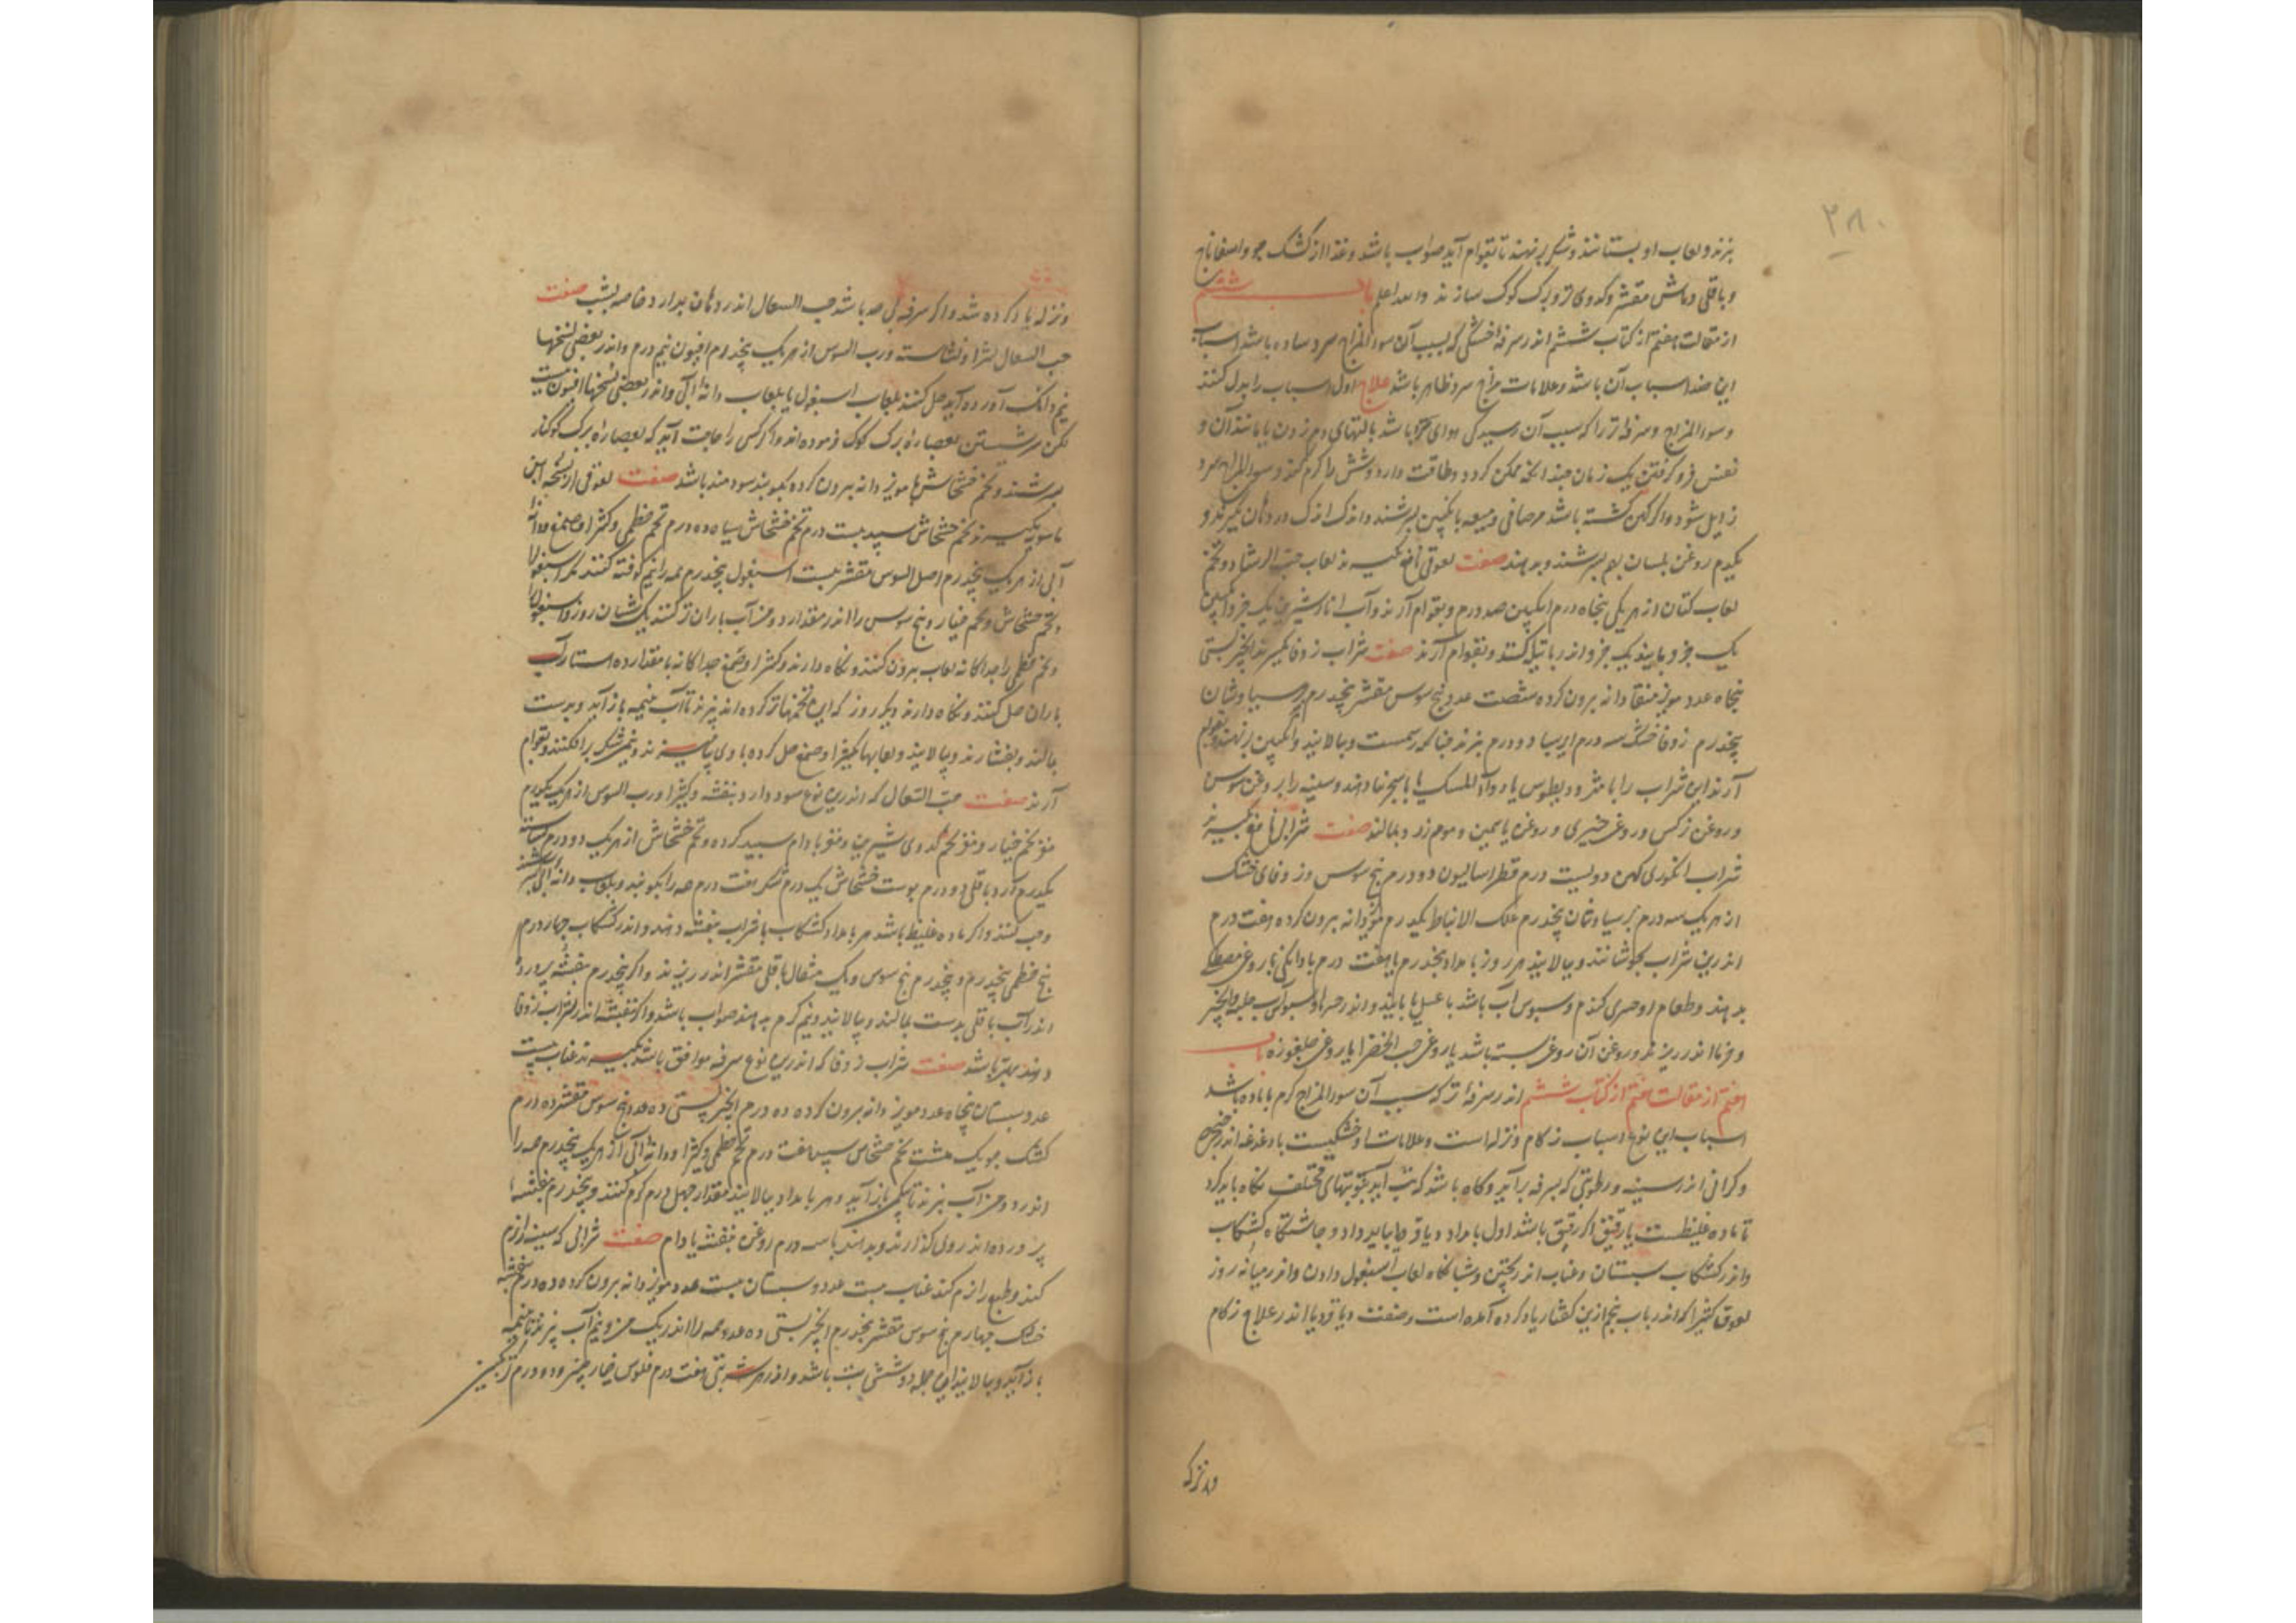 ۲۸۰
بزند و لعاب او بستانند و شکر برنهند تا بقوام آید صواب باشد و غذا از کشک جو و اسفاناخ
و باقلی و ماش مقشر و کدوی تر و برک کوک سازند والله اعلم باب ششم
از مقالت هفتم از کتاب ششم اندر سرفه خشکی که بسبب آن سوء المزاج سرد ساده باشد اسباب
این ضد اسباب آن باشد و علامات مزاج سرد ظاهر باشد علاج اول اسباب را بدل کنند
و سوء المزاج و سرفه تر را که سبب آن رسیدگی هوای باشد بالتهای دم زدن یا مانند آن و
نفس فرو گرفتن یک زمان چندانکه ممکن کردد و طاقت دارد شش را گرم کند و سوء المزاج سرد
زایل شود و اگر کهن گشته باشد مر صافی و میعه بانکبین بسرشند و اندک اندک در دهان میگیرند و
یکدرم روغن بلسان بسرشند و بدهند صفت لعوقی نافع بگیرند لعاب حب الرشاد و تخم
لعاب کتان از هر یکی پنجاه درم انکبین صد درم و بقوام آرند و آب انار شیرین یک جزو انکبین
یک جزو پانید یک جزو اندر پاتیل کنند و بقوام آرند صفت شراب زوفا بگیرند انجیر بستی
پنجاه عدد مویز منقا دانه برون کرده شصت عدد بیخ سوس مقشر پنجدرم پرسیاوشان
پنجدرم زوفا خشک سه درم ایرسا دو درم بزند چنانکه رسمست و بپالایند و انکبین برنهند و بقوام
آرند این شراب را با مثرودیطوس یا دواء المسک یا با سجزنیا دهند و سینه را بروغن سوس
و روغن نرکس و روغن خیری و روغن یاسمین و موم زرد بمالند صفت شرابی نافع بگیرند
شراب انکوری کهن دویست درم قطراسالیون دو درم بیخ سوس و زوفای خشک
از هر یک سه درم پرسیاوشان پنجدرم علک الانباط یکدرم مویز دانه برون کرده هفت درم
اندرین شراب بجوشانند و بپالایند هر روز بامداد پنجدرم یا هفت درم با دانکی نیم روغن مصطکی
بدهند و طعام او حسوی کندم و سبوس آب باشد با عسل یا پانید و اندر حسوها و سبوس آب حلبه و انجیر
و خرما اندر بزند و روغن آن روغن پسته باشد یا روغن حب الخضرا یا روغن جلغوزه باب
هفتم از مقالت هفتم از کتاب ششم اندر سرفه تر که سبب آن سوء المزاج گرم با ماده باشد
اسباب این نوع اسباب زکام و نزله است و علامات او خشکیست با دغدغه اندر حنجره
و کرانی اندر سینه و رطوبتی که بسرفه برآید و کاه باشد که تب آید بنوبتهای مختلف نکاه باید کرد
تا ماده غلیظست یا رقیق اگر رقیق باشد اول بامداد دیاقودا باید داد و چاشتگاه کشکاب
و اندر کشکاب سپستان و عناب اندر پختن و شبانکاه لعاب اسبغول دادن و اندر میانه روز
لعوق کثیرا که اندر باب پنجم ازین گفتار یاد کرده آمده است و صفت دیاقودیا اندر علاج زکام
و نزله
و نزله یاد کرده شد و اگر سرفه باشد حب السعال اندر دهان بدارد خاصه بشب صفت
حب السعال کثیرا و نشاسته و رب السوس از هر یک پنجدرم افیون نیم درم و اندر بعضی نسختها
نیم دانک آورده آید حل کنند بلعاب اسبغول یا بلعاب دانه آبی و اندر بعضی نسختها افیون نیست
لکن سرشتن بعصاره برک کوک فرموده اند و اگر کسی را حاجت آید که بعصاره برک کوکنار
بسرشند و تخم خشخاش با مویز دانه برون کرده بکوبند سودمند باشد صفت لعوقی از نسخه ابن
ماسویه بگیرند تخم خشخاش سپید بیست درم تخم خشخاش سیاه ده درم تخم خطمی و کثیرا و صمغ و دانه
آبی از هر یک پنجدرم اصل السوس مقشر بیست اسبغول پنجدرم همه را نیم کوفته کنند مکر اسبغول
و تخم خشخاش و تخم خیار و بیخ سوس را اندر مقدار دو من آب باران تر کنند یک شبان روز و اسبغول
و تخم خطمی را جداکانه لعاب برون کنند و نکاه دارند و کثیرا و صمغ جداکانه با مقدار ده استار آب
باران حل کنند و نکاه دارند دیگر روز که این تخمها تر کرده اند بپزند تا آب بنیمه بازآید و بدست
بمالند و بفشارند و بپالایند و لعابها و کثیرا و صمغ حل کرده با وی بیامیزند و نیم من شکر برافکنند و بقوام
آرند صفت حب السعال که اندرین نوع سود دارد بنفشه و کثیرا و رب السوس از هر یک یکدرم
مغز تخم خیار و مغز تخم کدوی شیرین و مغز بادام سپید کرده و تخم خشخاش از هر یک دو درم نشاسته
یکدرم آرد باقلی دو درم پوست خشخاش یک درم شکر هفت درم همه را بکوبند و بلعاب دانه آبی بسرشند
و حب کنند و اگر ماده غلیظ باشد هر بامداد کشکاب با شراب بنفشه دهند و اندر کشکاب چهار درم
بیخ خطمی پنجدرم و پنجدرم بیخ سوس و یک مثقال باقلی مقشر اندر پزند و اگر پنجدرم بنفشه پرورده
اندر آب باقلی بدست بمالند و بپالایند و نیم گرم بدهند صواب باشد و اگر بنفشه اندر شراب زوفا
دهند بهتر باشد صفت شراب زوفا که اندرین نوع سرفه موافق باشد بگیرند عناب بیست
عدد سپستان پنجاه عدد مویز دانه برون کرده ده درم انجیر بستی ده عدد بیخ سوس مقشر ده درم
کشک جو یک مشت تخم خشخاش سپید هفت درم تخم خطمی و کثیرا و دانه آبی از هر یک پنجدرم همه را
اندر دو من آب بپزند تا بیکمن بازآید و هر بامداد بپالایند مقدار چهل درم گرم کنند و پنجدرم بنفشه
پرورده اندر وی گذارند و بدهند با سه درم روغن بنفشه بادام صفت شرابی که سینه را نرم
کند و طبع را نرم کند عناب بیست عدد سپستان بیست عدد مویز دانه برون کرده ده درم بنفشه
خشک چهار درم بیخ سوس مقشر پنجدرم انجیر بستی ده عدد همه را اندر یک من و نیم آب بپزند تا بنیمه
بازآید و بپالایند این جمله دو شربت باشد و اندر هر شربتی هفت درم فلوس خیارچنبر و ده درم ترنجبین